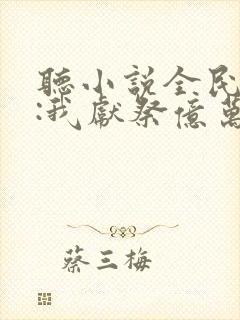 聽小說全民
:我獻祭億萬
蔡三梅